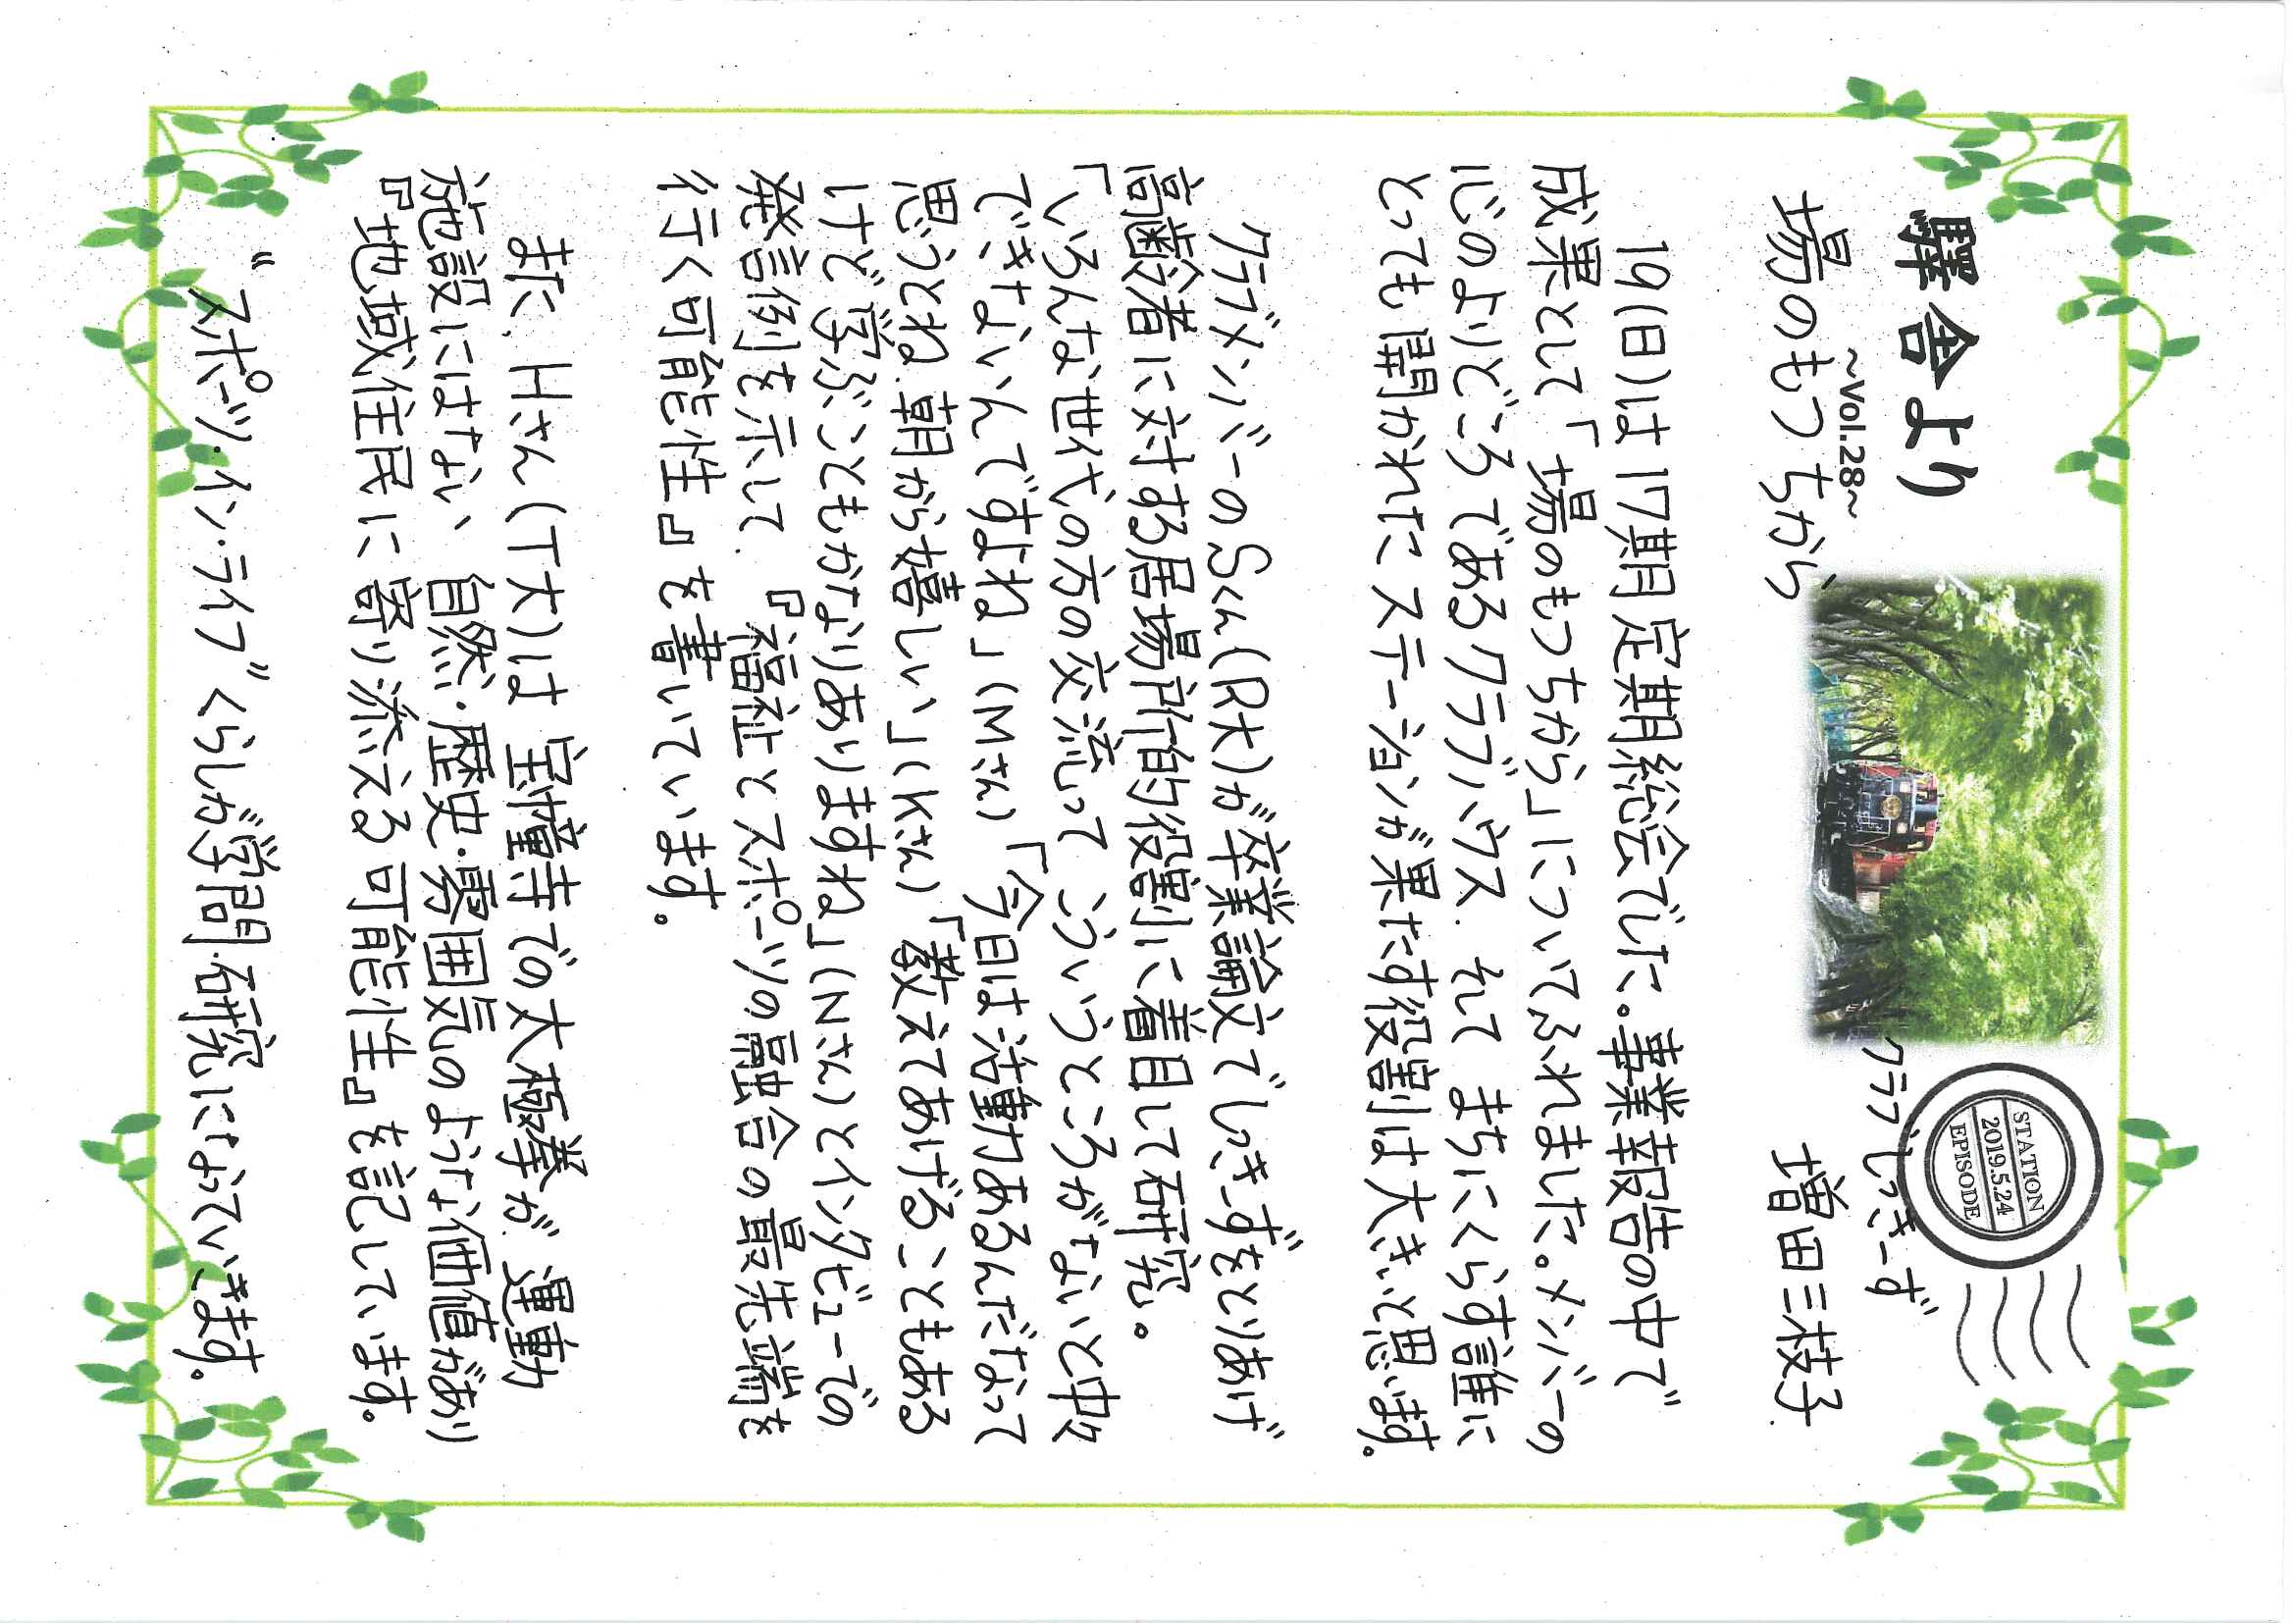 驛舎より
~Vol.28~
クラブしっきーず
STATION
2019.5.24
EPISODE
場のもつちから
増田三枝子
19(日)は17期定期総会でした。事業報告の中で
成果として「場のもつちから」についてふれました。メンバーの
心のよりどころであるクラブハウス、そして まちにくらす誰に
とっても開かれたステーションが果たす役割は大きいと思います。
クラブメンバーのSくん(R大)が卒業論文でしっきーずをとりあげ
高齢者に対する居場所的役割に着目して研究。
「いろんな世代の方の交流って こういうところがないと中々
できないんですよね」(Mさん)「今日は活動あるんだなって
思うとね、朝から嬉しい」(Kさん)「教えてあげることもある
けど学ぶこともかなりありますね」(Nさん)とインタビューでの
発言例を示して、『福祉とスポーツの融合の最先端を
行く可能性』を書いています。
また、Hさん(T大)は 宝幢寺での太極拳が、運動
施設にはない 自然・歴史・雰囲気のような価値があり
『地域住民に寄り添える可能性』を記しています。
“スポーツ・イン・ライフ”くらしが学問・研究になっていきます。